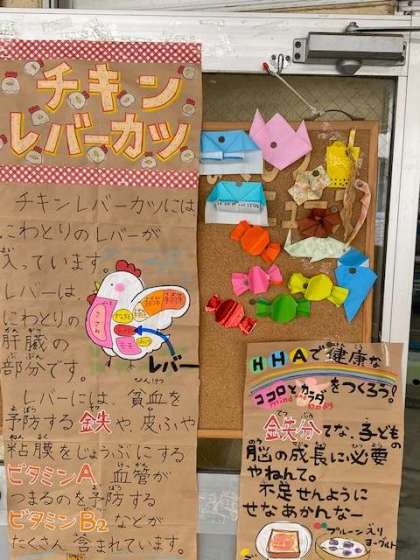 チキン
レバーカツ
チキンレバーカツには
にわとりのレバーが
入っています。
レバーは、
にわとりの
肝臓の
部分です。
レバー
レバーには、貧血を
予防する鉄や、皮ふや
粘膜をじょうぶにする
ビタミンA、血管が
つまるのを予防する
ビタミンB2などが
たくさん含まれています。
HHAで健康な
ココロとカラダをつくろう!
mind body
鉄分てな、子どもの
脳の成長に必要
やねんて。
不足せんように
せなあかんなー
プルーン入り
ヨーグルト